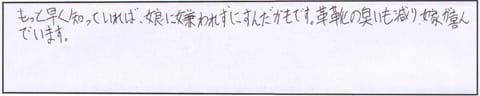 もっと早く知っていれば、娘に嫌われずにすんだかもです。革靴の臭いも減り、嫁が喜ん
でいます。